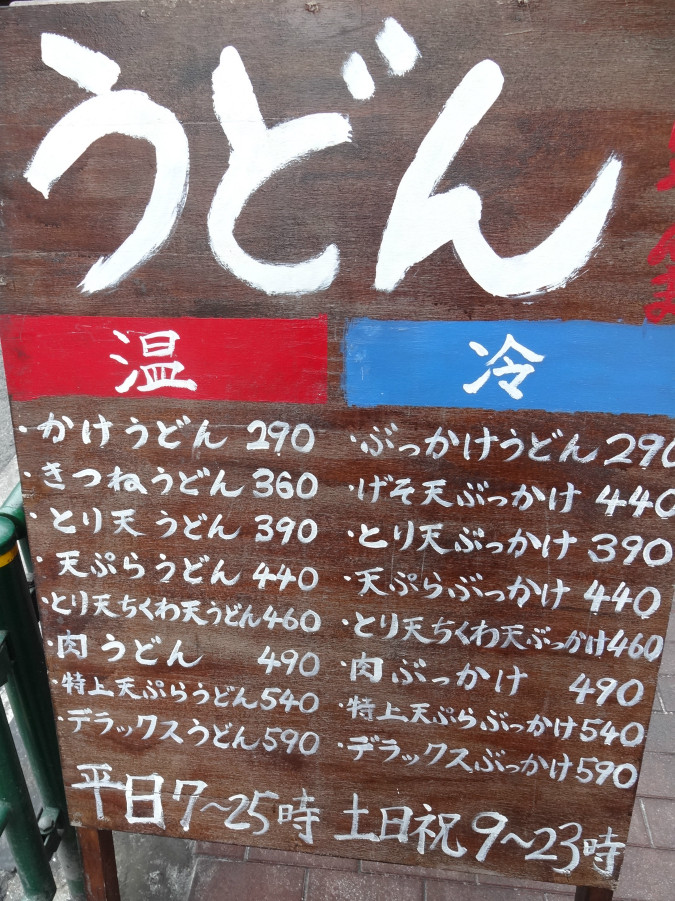 うどん
温
・かけうどん 290
・きつねうどん 360
・とり天うどん 390
・天ぷらうどん 440
・とり天ちくわ天うどん 460
・肉うどん 490
・特上天ぷらうどん 540
・デラックスうどん 590
冷
・ぶっかけうどん 290
・げそ天ぶっかけ 440
・とり天ぶっかけ 390
・天ぷらぶっかけ 440
・とり天ちくわ天ぶっかけ 460
・肉ぶっかけ 490
・特上天ぷらぶっかけ 540
・デラックスぶっかけ 590
平日7~25時 土日祝9~23時